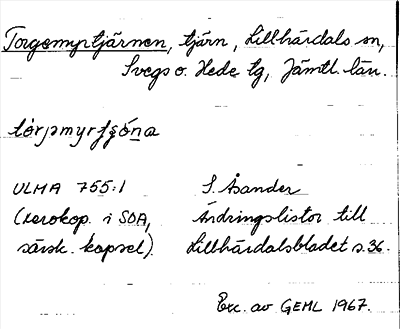 Torgemyrtjärnen, tjärn, Lillhärdals sn,
Svegs o. Hede tg, Jämtl. län.
tórpmyrʃʃóna
ULMA 755:1 S. Åsander
(xerokop. i SOA, Ändringslistor till
särsk. kapsel). Lillhärdalsbladet s. 36.
Exc. av GEHL 1967.